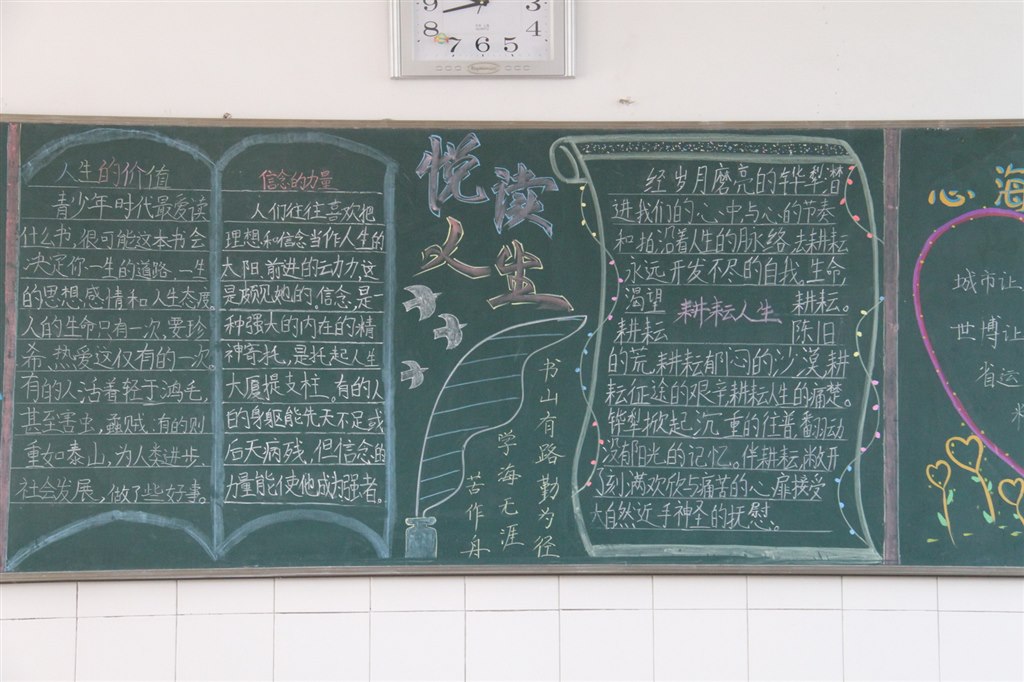 9
8
7 6 5
4
3
人生的价值
青少年时代最爱读
什么书,很可能这本书会
决定你一生的道路,一生
的思想,感情和人生态度。
人的生命只有一次,要珍
希、热爱这仅有的一次。
有的人活着轻于鸿毛,
甚至害虫,蟊贼.有的则
重如泰山,为人类进步、
社会发展,做了些好事。
信念的力量
人们往往喜欢把
理想,和信念当作人生的
太阳,前进的动力,这
是颇见地的.信念,是一
种强大的内在的精
神寄托,是托起人生
大厦提支柱。有的人
的身躯能先天不足或
后天病残,但信念的
力量能使他成为强者。
悦读
人生
书山有路勤为径
学海无涯
苦作舟
经岁月磨亮的铧犁,踏
进我们的心,中与心的节奏
和拍,沿着人生的脉络,去耕耘
永远开发不尽的自我,生命,
渴望 耕耘人生 耕耘。
耕耘 陈旧
的荒,耕耘郁闷的沙漠,耕
耘征途的艰辛,耕耘人生的痛楚。
铧犁掀起沉重的往昔,翻动
没有阳光的记忆。伴耕耘,敞开
了刻满欢欣与痛苦的心扉接受
大自然近乎神圣的抚慰。
心海
城市让
世博让
省运